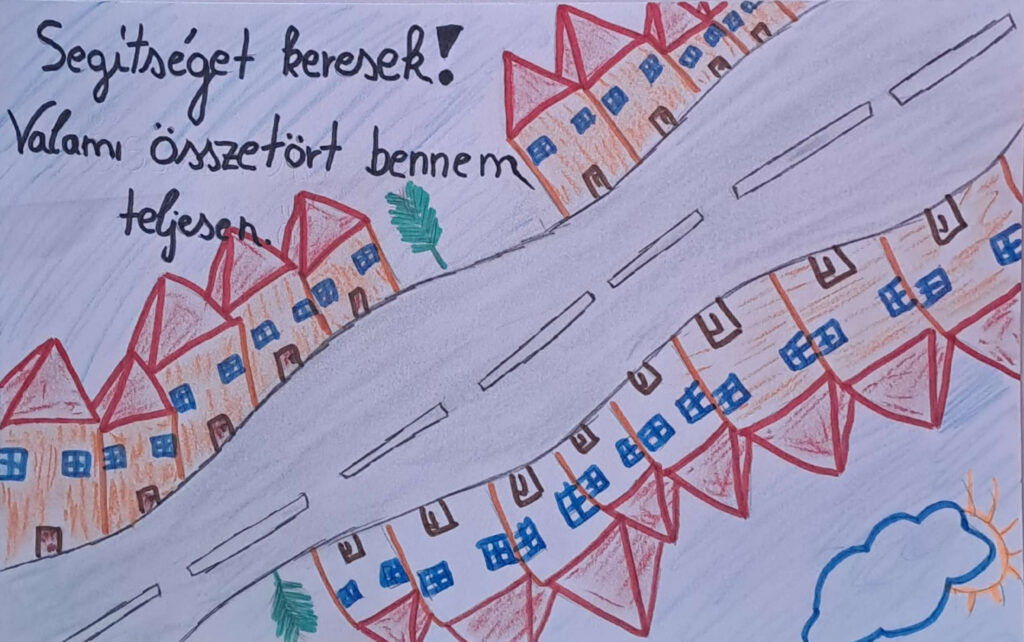 Segítséget keresek!
Valami összetört bennem
teljesen.